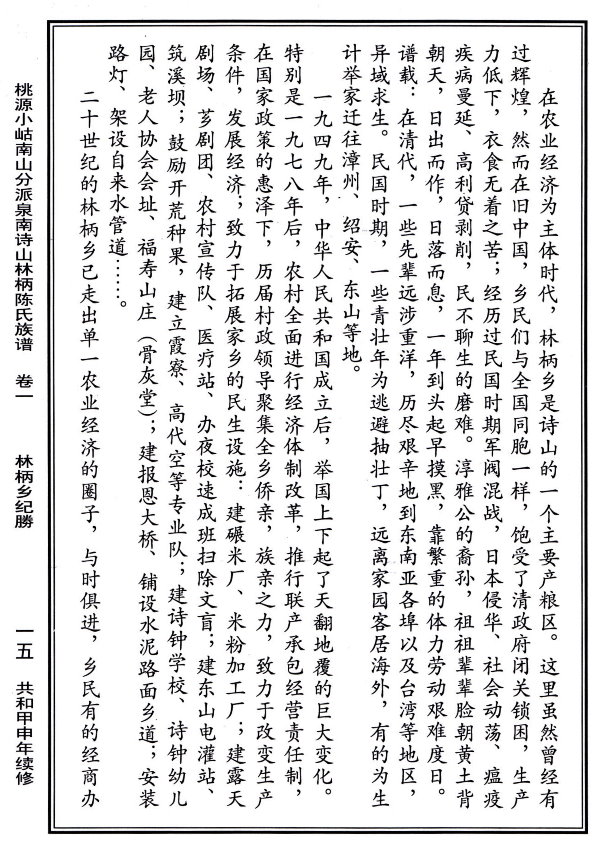 在农业经济为主体时代，林柄乡是诗山的一个主要产粮区。这里虽然曾经有
过辉煌，然而在旧中国，乡民们与全国同胞一样，饱受了清政府闭关锁困，生产
力低下，衣食无着之苦；经历过民国时期军阀混战，日本侵华、社会动荡、瘟疫
疾病曼延、高利贷剥削，民不聊生的磨难。淳雅公的裔孙，祖祖辈辈脸朝黄土背
朝天，日出而作，日落而息，一年到头起早摸黑，靠繁重的体力劳动艰难度日。
谱载：在清代，一些先辈远涉重洋，历尽艰辛地到东南亚各埠以及台湾等地区，
异域求生。民国时期，一些青壮年为逃避抽壮丁，远离家园客居海外，有的为生
计举家迁往漳州、绍安、东山等地。
一九四九年，中华人民共和国成立后，举国上下起了天翻地覆的巨大变化。
特别是一九七八年后，农村全面进行经济体制改革，推行联产承包经营责任制，
在国家政策的惠泽下，历届村政领导聚集全乡侨亲，族亲之力，致力于改变生产
条件，发展经济；致力于拓展家乡的民生设施：建碾米厂、米粉加工厂；建露天
剧场、芗剧团、农村宣传队、医疗站、办夜校速成班扫除文盲；建东山电灌站、
筑溪坝；鼓励开荒种果，建立霞寮、高代空等专业队；建诗钟学校、诗钟幼儿
园、老人协会会址、福寿山庄（骨灰堂）；建报恩大桥、铺设水泥路面乡道；安装
路灯、架设自来水管道……。
二十世纪的林柄乡已走出单一农业经济的圈子，与时俱进，乡民有的经商办
桃源小岵南山分派泉南诗山林柄陈氏族谱 卷一 林柄乡纪勝 一五 共和甲申年续修